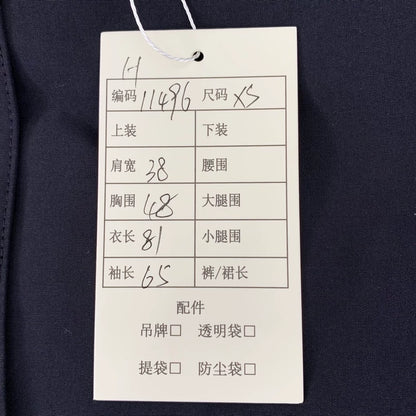 H
编码 11496 尺码 XS
上装 下装
肩宽 38 腰围
胸围 48 大腿围
衣长 81 小腿围
袖长 65 裤/裙长
配件
吊牌□ 透明袋□
提袋□ 防尘袋□